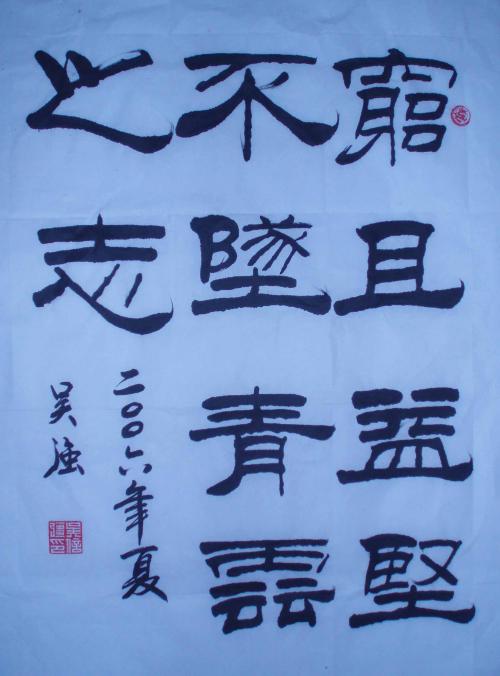 窮且益堅
不墜青雲
之志
二〇〇六年夏
吴强